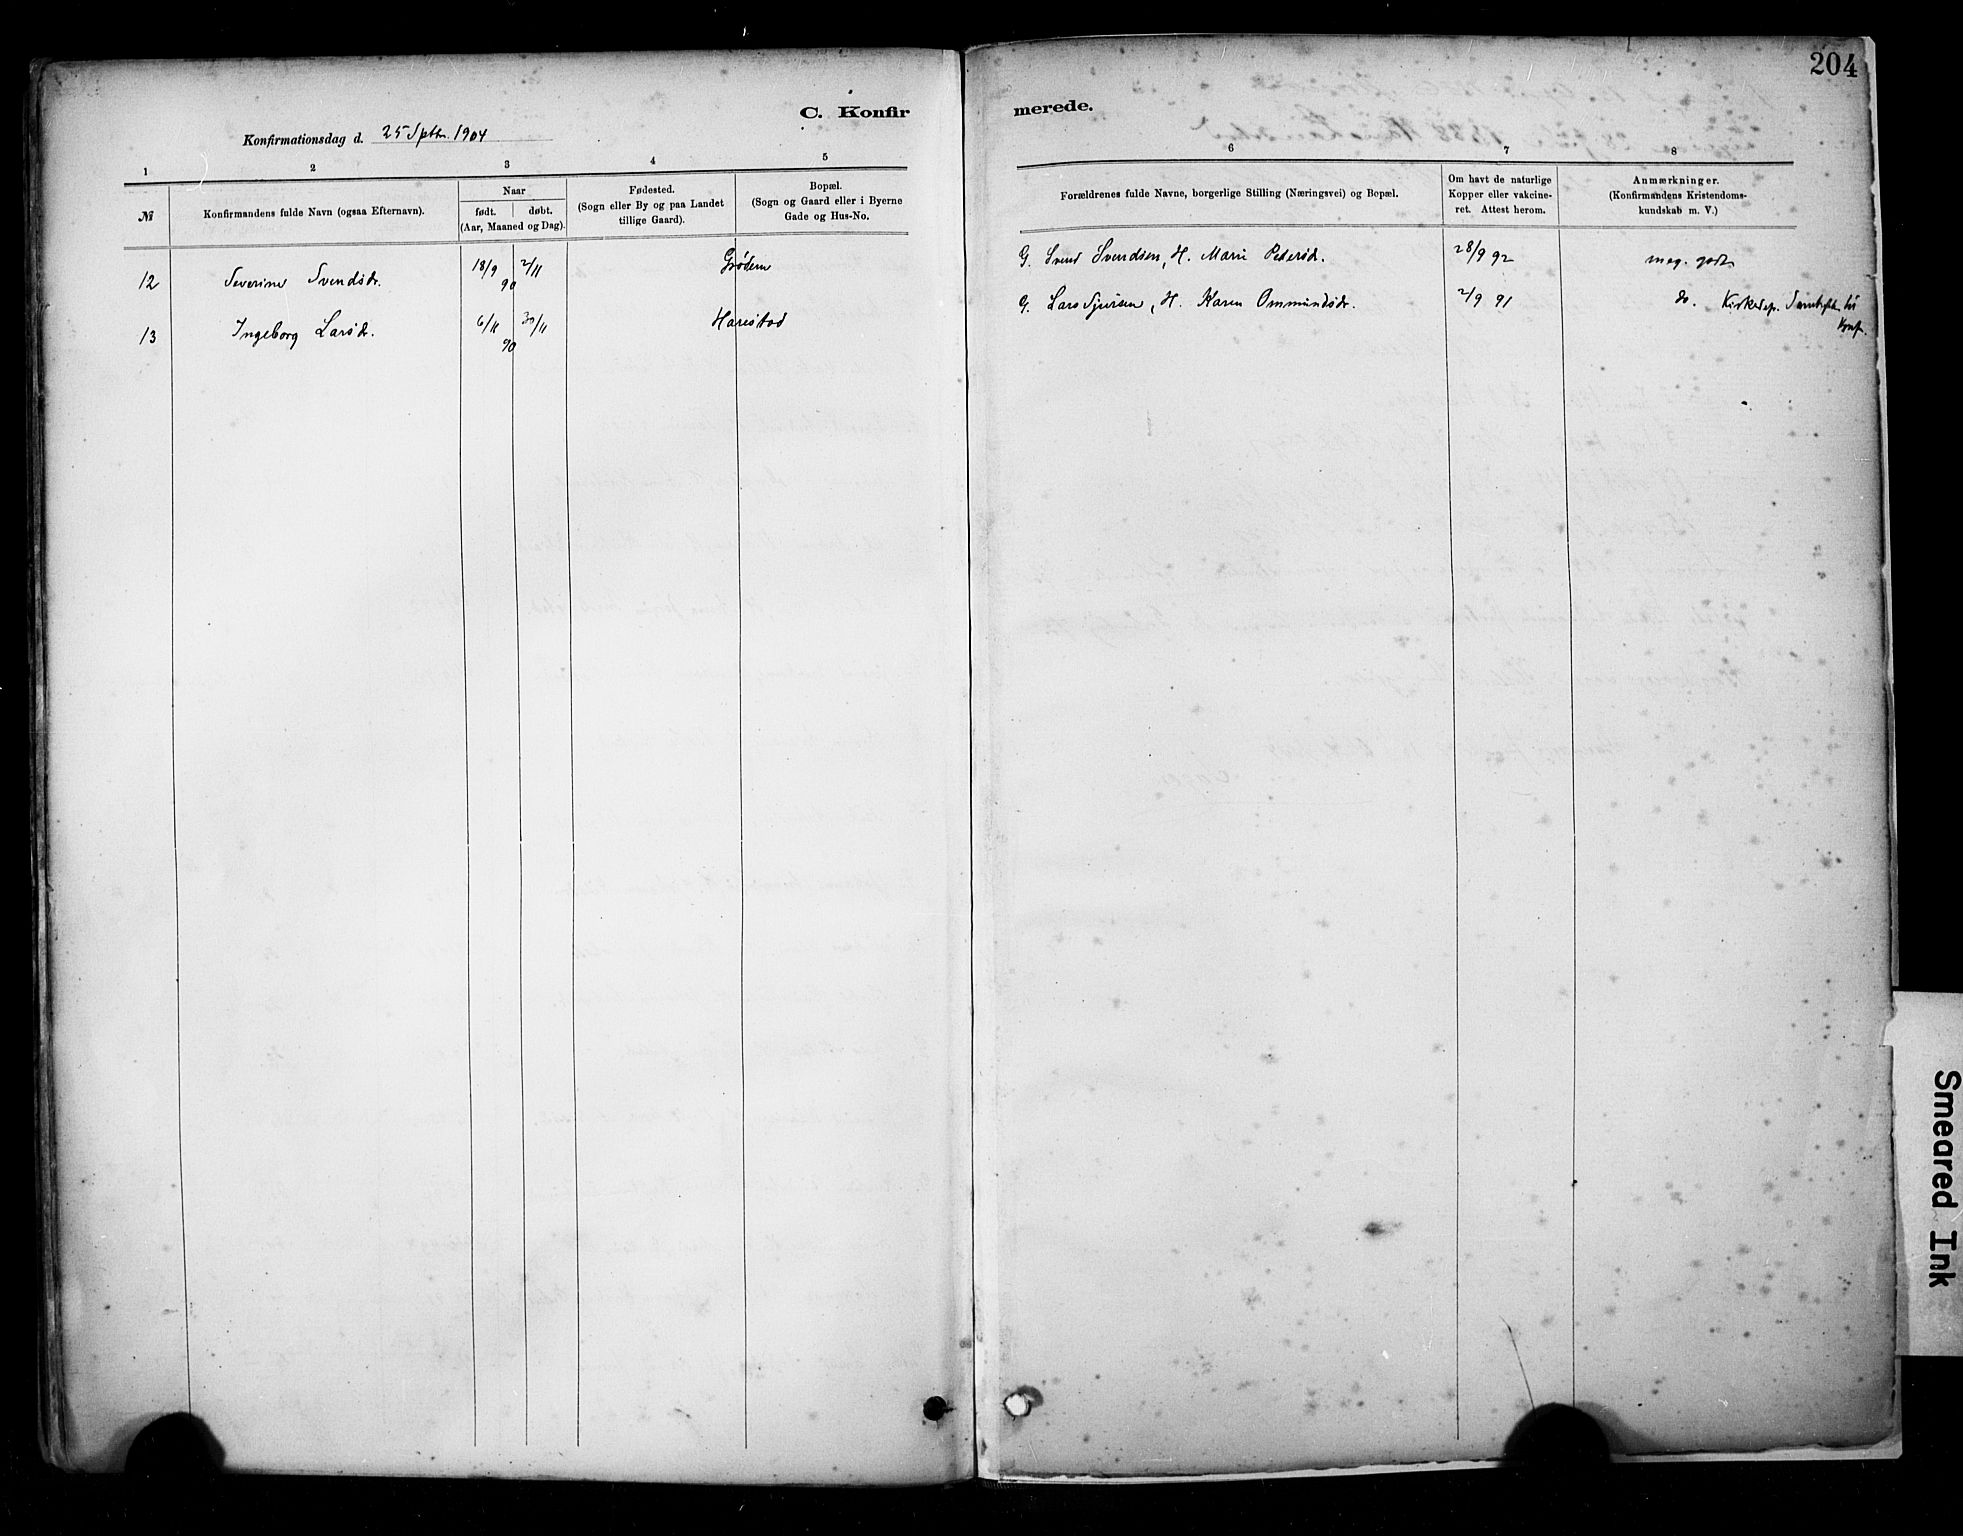 204
C. Konfir merede.
Konfirmationsdag d. 25 Septbr. 1904
1 2 3 4 5 6 7 8
№
Konfirmandens fulde Navn (ogsaa Efternavn).
Naar
født. døbt.
(Aar, Maaned og Dag).
Fødested.
(Sogn eller By og paa Landet
tillige Gaard).
Bopæl.
(Sogn og Gaard eller i Byerne
Gade og Hus-No.
Forældrenes fulde Navne, borgerlige Stilling (Næringsvei) og Bopæl.
Om havt de naturlige
Kopper eller vakcine-
ret. Attest herom.
Anmærkninger.
(Konfirmandens Kristendoms-
kundskab m. V.)
12 Severine Svendsdr. 18/9 90 2/11 Grødem G. Svend Svendsen, H. Marie Pedersd. 28/9 92 meg. godt
13 Ingeborg Larsd. 6/11 90 30/11 Harestad G. Lars Sjursen, H. Karen Ommundsdr. 2/9 91 do. Kirkedep. Samtykke til
Konf.
Smeared Ink